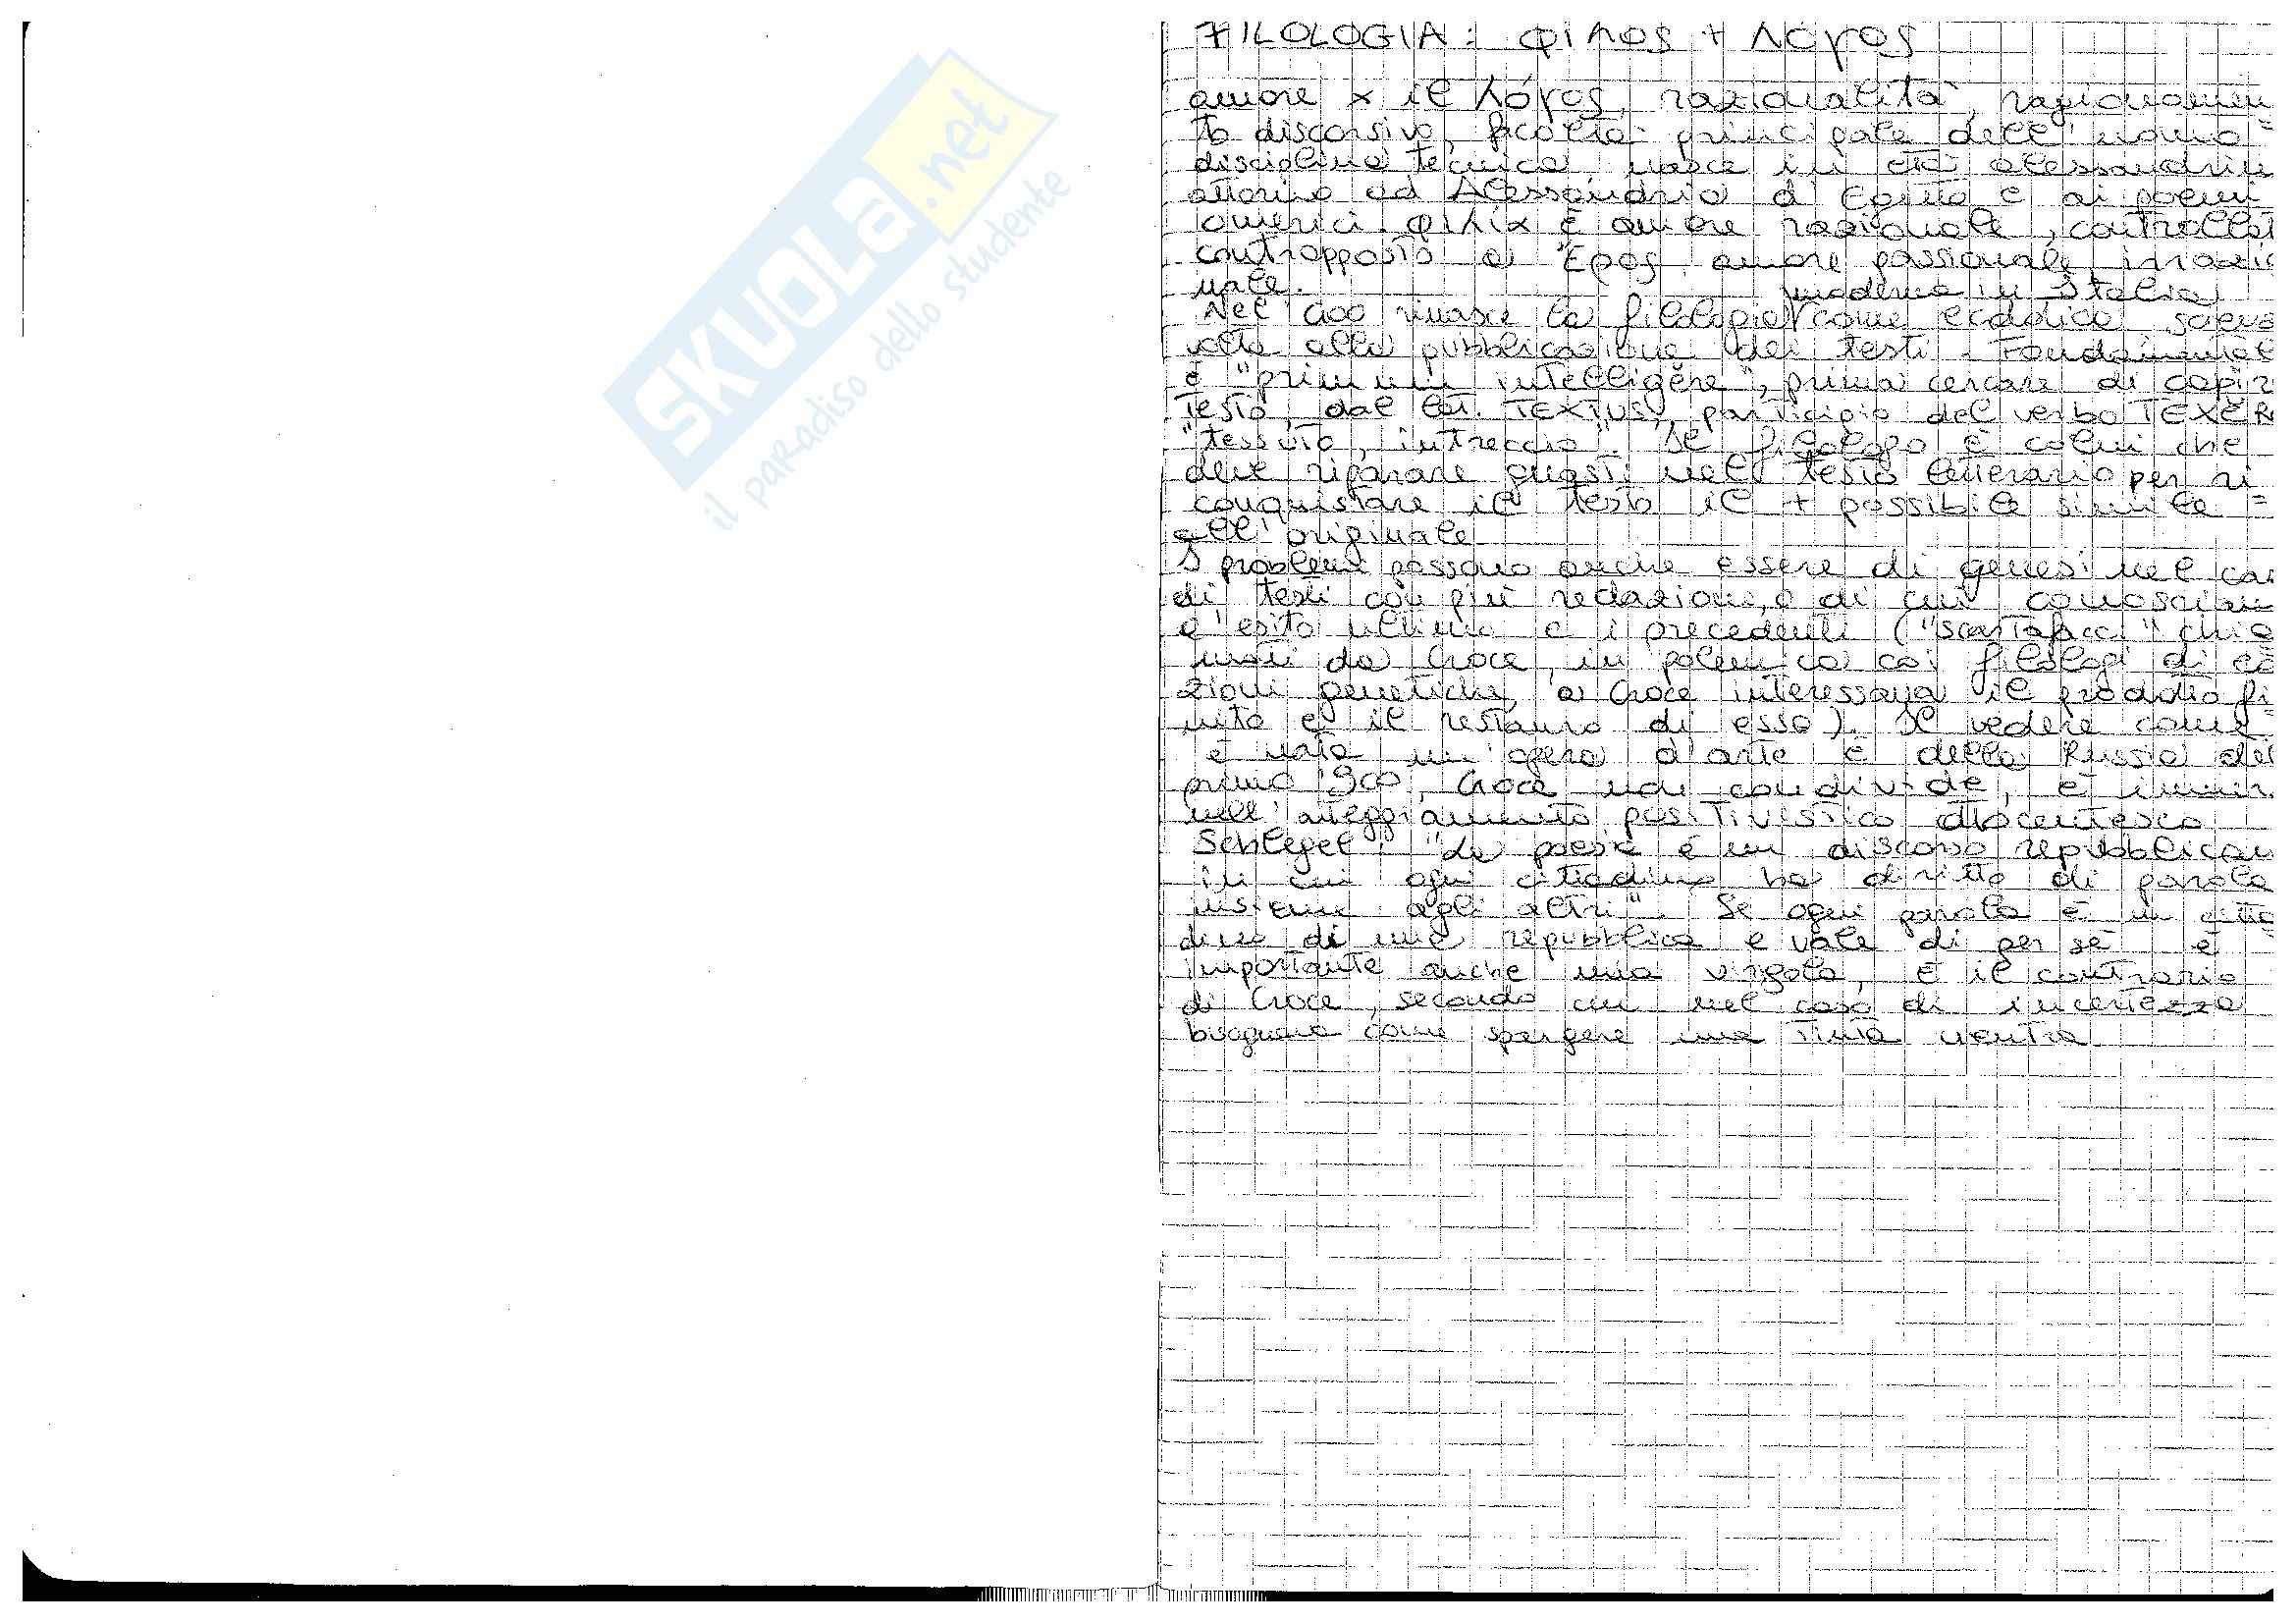 SKUOLA.net
il paradiso dello studente
FILOLOGIA: φιλος + λόγος
amore x il λόγος, razionalità, ragionamen
to discorsivo, facoltà principale dell'uomo =
disciplina tecnica nasce in età alessandrin
attorno ad Alessandria d'Egitto e ai poemi
omerici. φιλία è amore razionale, controllat
contrapposto a Ἔρος amore passionale, irrazio
nale.
moderna in Italia
Nel rinasce la filologia come ecdotica,
volta alla pubblicazione dei testi. Fondamental
è "primum intelligĕre", prima cercare di capir
Testo, dal lat. TEXTUS, participio del verbo TEXĔR
"tessuto, intreccio". Il filologo è colui che
deve riparare guasti nel testo letterario per ri
conquistare il testo il + possibile simile =
all'originale
I problemi possono anche essere di genesi nel cas
di testi con più redazioni, o di cui conosciam
l'esito ultimo e i precedenti ("scartafacci" chia
mati da Croce, in polemica coi filologi di ed
zioni genetiche, a Croce interessava il prodotto fi
nito e il restauro di esso). Il vedere come
è nata un'opera d'arte è della Russia del
primo '900, Croce non condivide, è
nell'atteggiamento positivistico ottocentesco
Schlegel: "La poesia è un discorso repubblican
in cui ogni cittadino ha diritto di parola
insieme agli altri". Se ogni parola è un citta
dino di una repubblica e vale di per sé è
importante anche una virgola, è il contrario
di Croce, secondo cui nel caso di incertezza
bisognava come spargere una tinta neutra